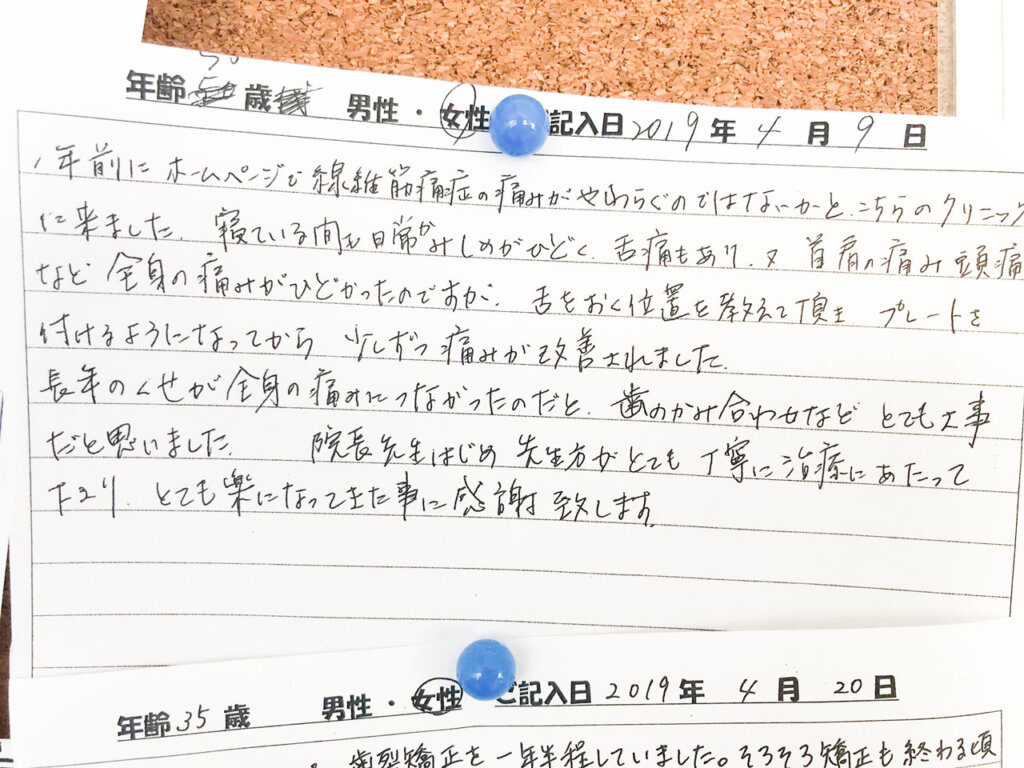 年齢 50 歳 男性・女性 ご記入日 2019年 4月 9日
1年前に ホームページで 線維筋痛症の痛みがやわらぐのではないかと、こちらのクリニック
に来ました。寝ている間も日常かみしめがひどく、舌痛もあり、又 首肩の痛み 頭痛
など 全身の痛みがひどかったのですが、舌をおく位置を教えて頂き プレートを
付けるようになってから 少しずつ痛みが改善されました。
長年のくせが全身の痛みにつながったのだと、歯のかみ合わせなど とても大事
だと思いました。 院長先生はじめ 先生方がとても 丁寧に治療にあたって
下さり、とても楽になってきた事に感謝致します。
年齢 35 歳 男性・女性 ご記入日 2019年 4月 20日
歯列矯正を一年半程していました。そろそろ矯正も終わる頃